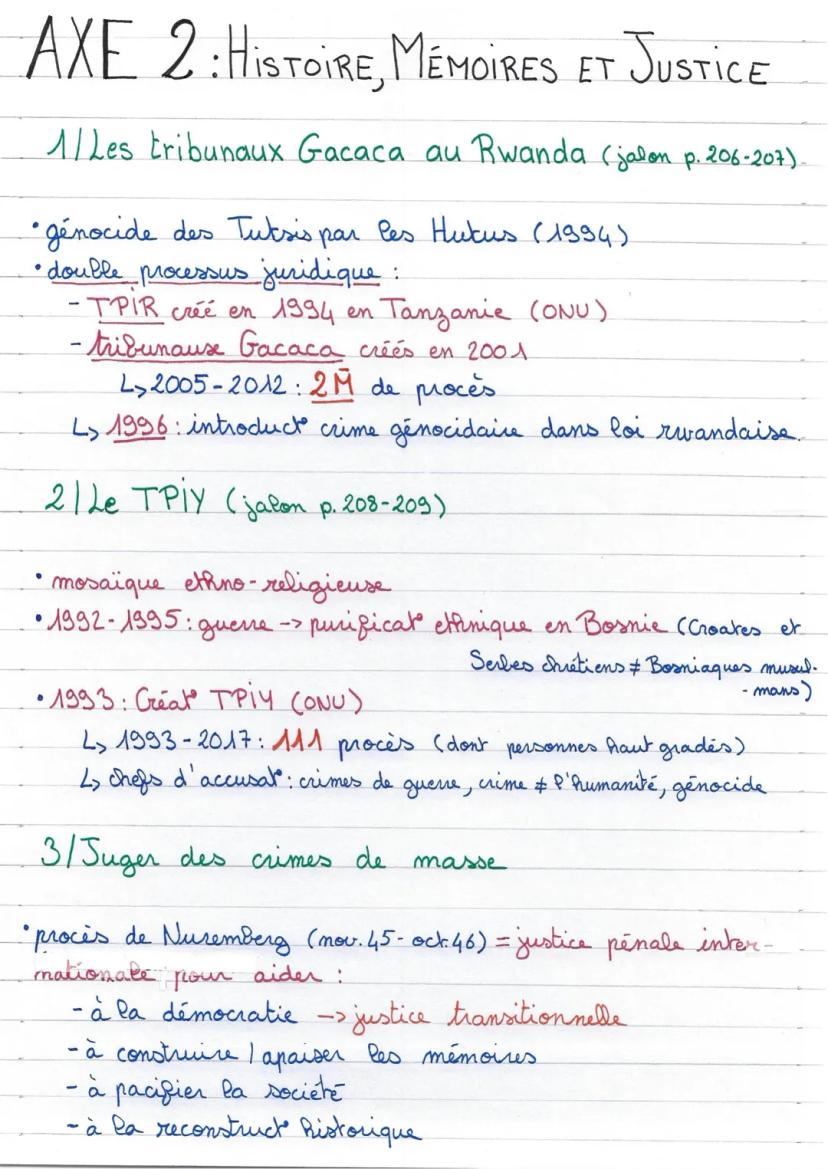 AXE 2 : HISTOIRE, MÉMOIRES ET JUSTICE
1/ Les tribunaux Gacaca au Rwanda (jalon p. 206-207)
• génocide des Tutsis par les Hutus (1994)
• double processus juridique :
- TPIR créé en 1994 en Tanzanie (ONU)
- tribunaux Gacaca créés en 2001
↳ 2005 - 2012 : 2M̄ de procès
↳ 1996 : introduct° crime génocidaire dans loi rwandaise.
2/ Le TPIY (jalon p. 208-209)
• mosaïque ethno-religieuse
• 1992-1995 : guerre -> purificat° ethnique en Bosnie (Croates et
Serbes chrétiens ≠ Bosniaques musul-
-mans)
• 1993 : Créat° TPIY (ONU)
↳ 1993 - 2017 : 111 procès (dont personnes haut gradés)
↳ chefs d'accusat° : crimes de guerre, crime ≠ l'humanité, génocide
3/ Juger des crimes de masse
• procès de Nuremberg (nov. 45 - oct. 46) = justice pénale inter-
nationale pour aider :
- à la démocratie -> justice transitionnelle
- à construire / apaiser les mémoires
- à pacifier la société
- à la reconstruct° historique